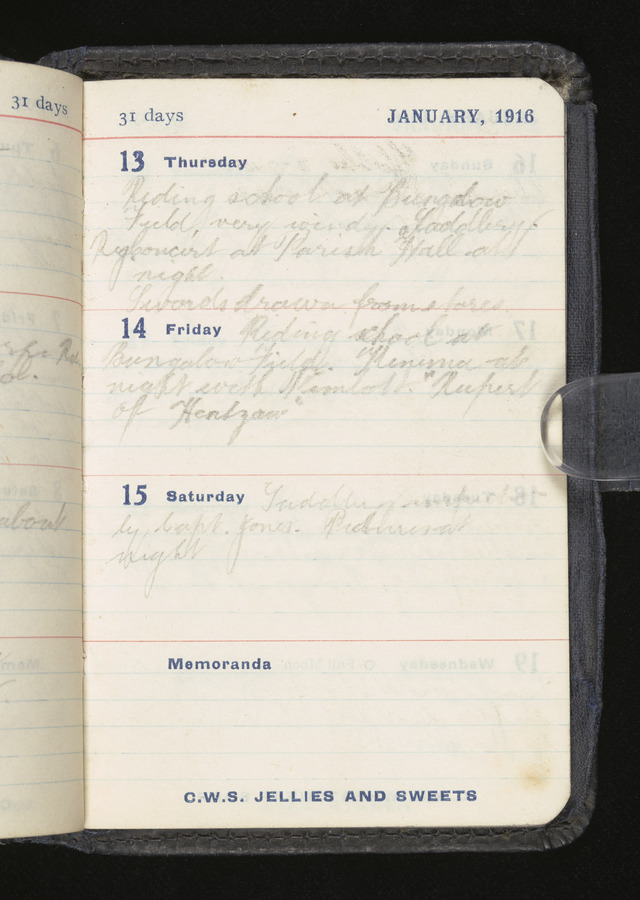 31 days
31 days JANUARY, 1916
13 Thursday
Riding school at Bungalow
Field, very windy. Saddlery
concert at Parish Hall at
night.
Swords drawn from stores.
14 Friday Riding school at
Bungalow Field. Kinema at
night with "Rupert
of Hentzau"
15 Saturday Saddlery
by Capt. Jones. Pictures at
night
about
Memoranda
C.W.S. JELLIES AND SWEETS